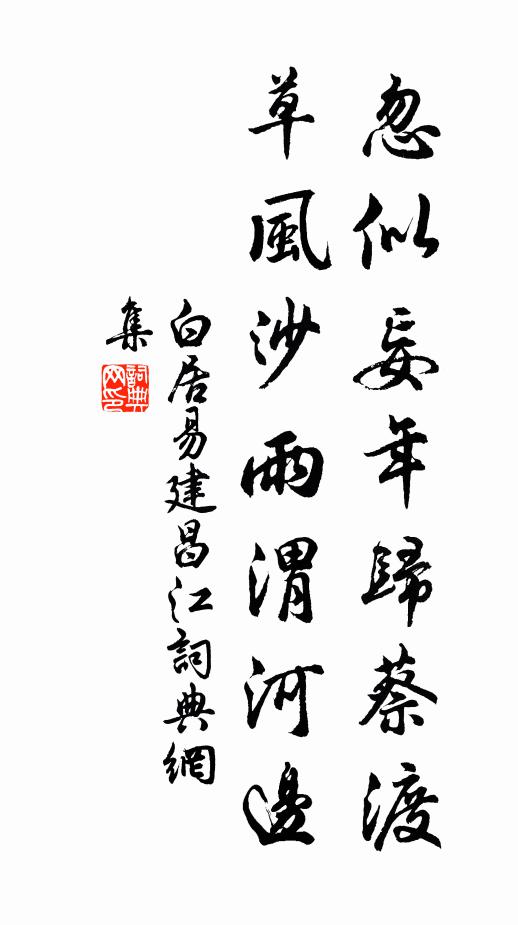 忽似年歸蔡渡
草風沙雨渭河邊
白居易建昌江詞典網
集
詞典
网印